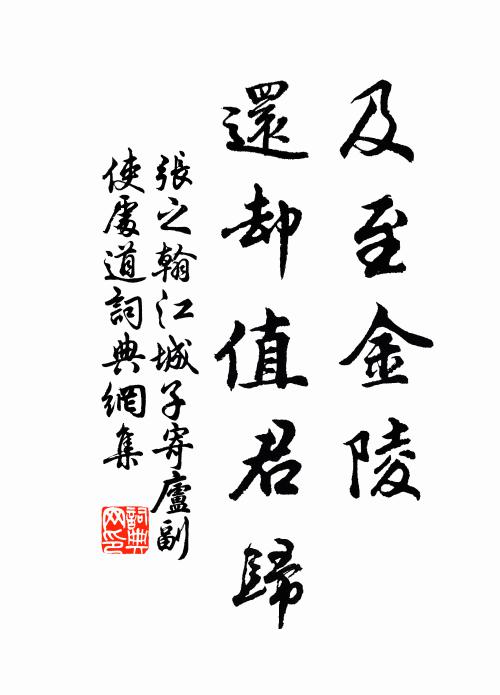 及至金陵
還却值君歸
張之翰江城子寄廬副
使處道詞典網集
詞典网印